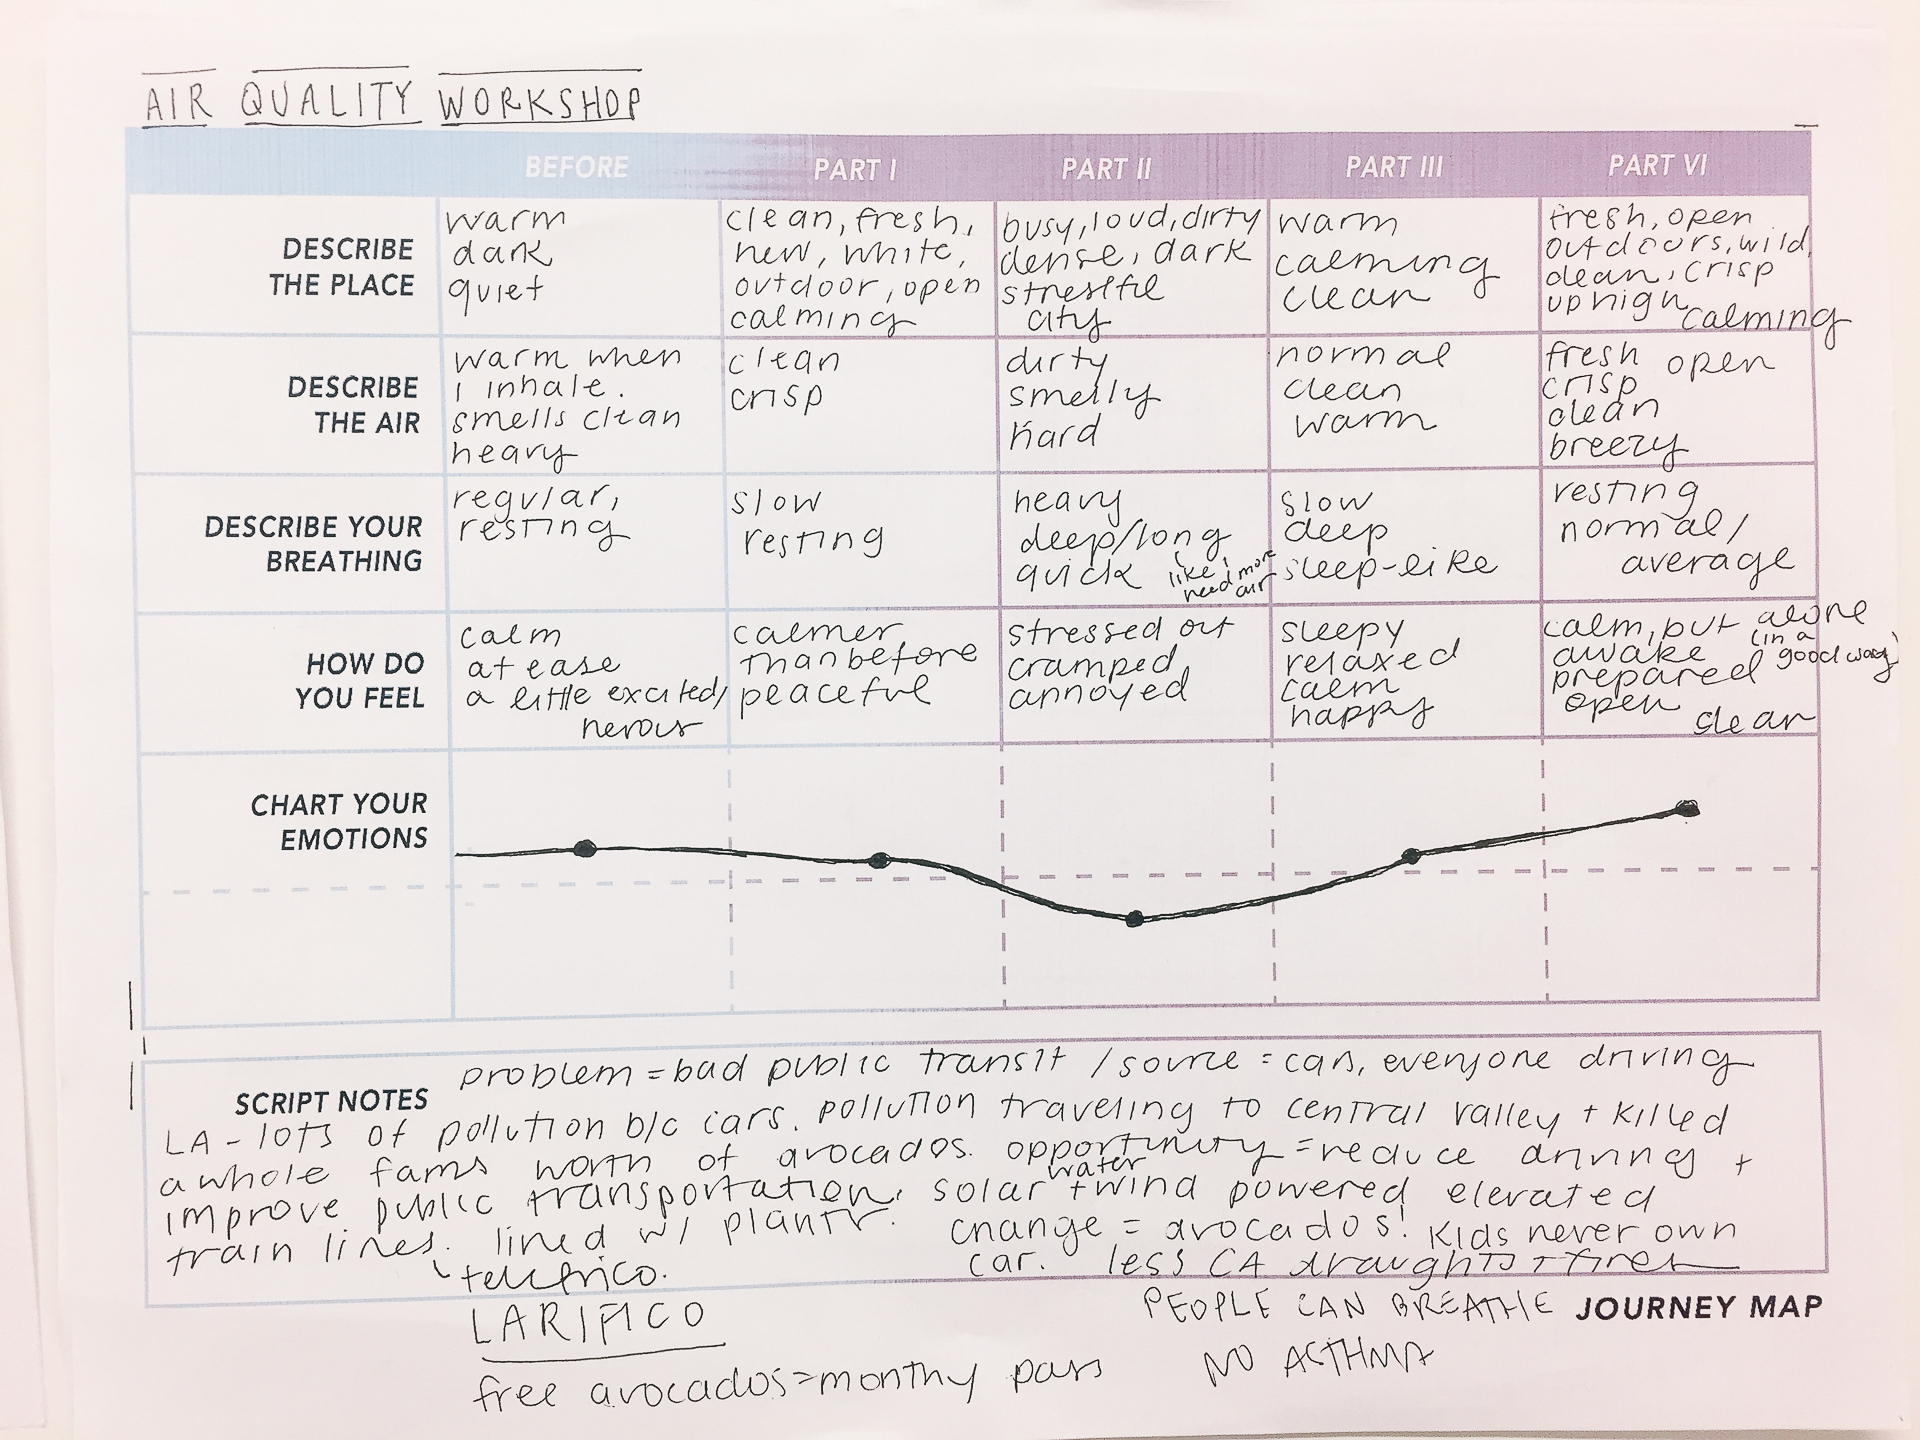 AIR QUALITY WORKSHOP
BEFORE PART I PART II PART III PART VI
DESCRIBE
THE PLACE
warm
dark
quiet
clean, fresh,
new, white,
outdoor, open
calming
busy, loud, dirty
dense, dark
city
warm
calming
clean
fresh, open
outdoors, wild,
clean, crisp
up high
calming
DESCRIBE
THE AIR
warm when
I inhale.
smells clean
heavy
clean
crisp
dirty
smelly
hard
normal
clean
warm
fresh open
crisp
clean
breezy
DESCRIBE YOUR
BREATHING
regular,
resting
slow
resting
heavy
deep/long
quick
like I
need more
air
slow
deep
sleep-like
resting
normal/
average
HOW DO
YOU FEEL
calm
at ease
a little excited/
nervous
calmer
than before
peaceful
stressed out
cramped
annoyed
sleepy
relaxed
calm
happy
calm, but alone
(in a
good way)
awake
prepared
open
clear
CHART YOUR
EMOTIONS
SCRIPT NOTES
problem = bad public transit / source = cars, everyone driving
LA - lots of pollution b/c cars. pollution traveling to central valley + killed
a whole farms worth of avocados. opportunity = reduce driving +
improve public transportation. solar + wind powered elevated
water
train lines. lined w/ plants. change = avocados! Kids never own
car. less CA draughts + fires
LARIFICO
PEOPLE CAN BREATHE
JOURNEY MAP
NO ASTHMA
free avocados = monthy pass